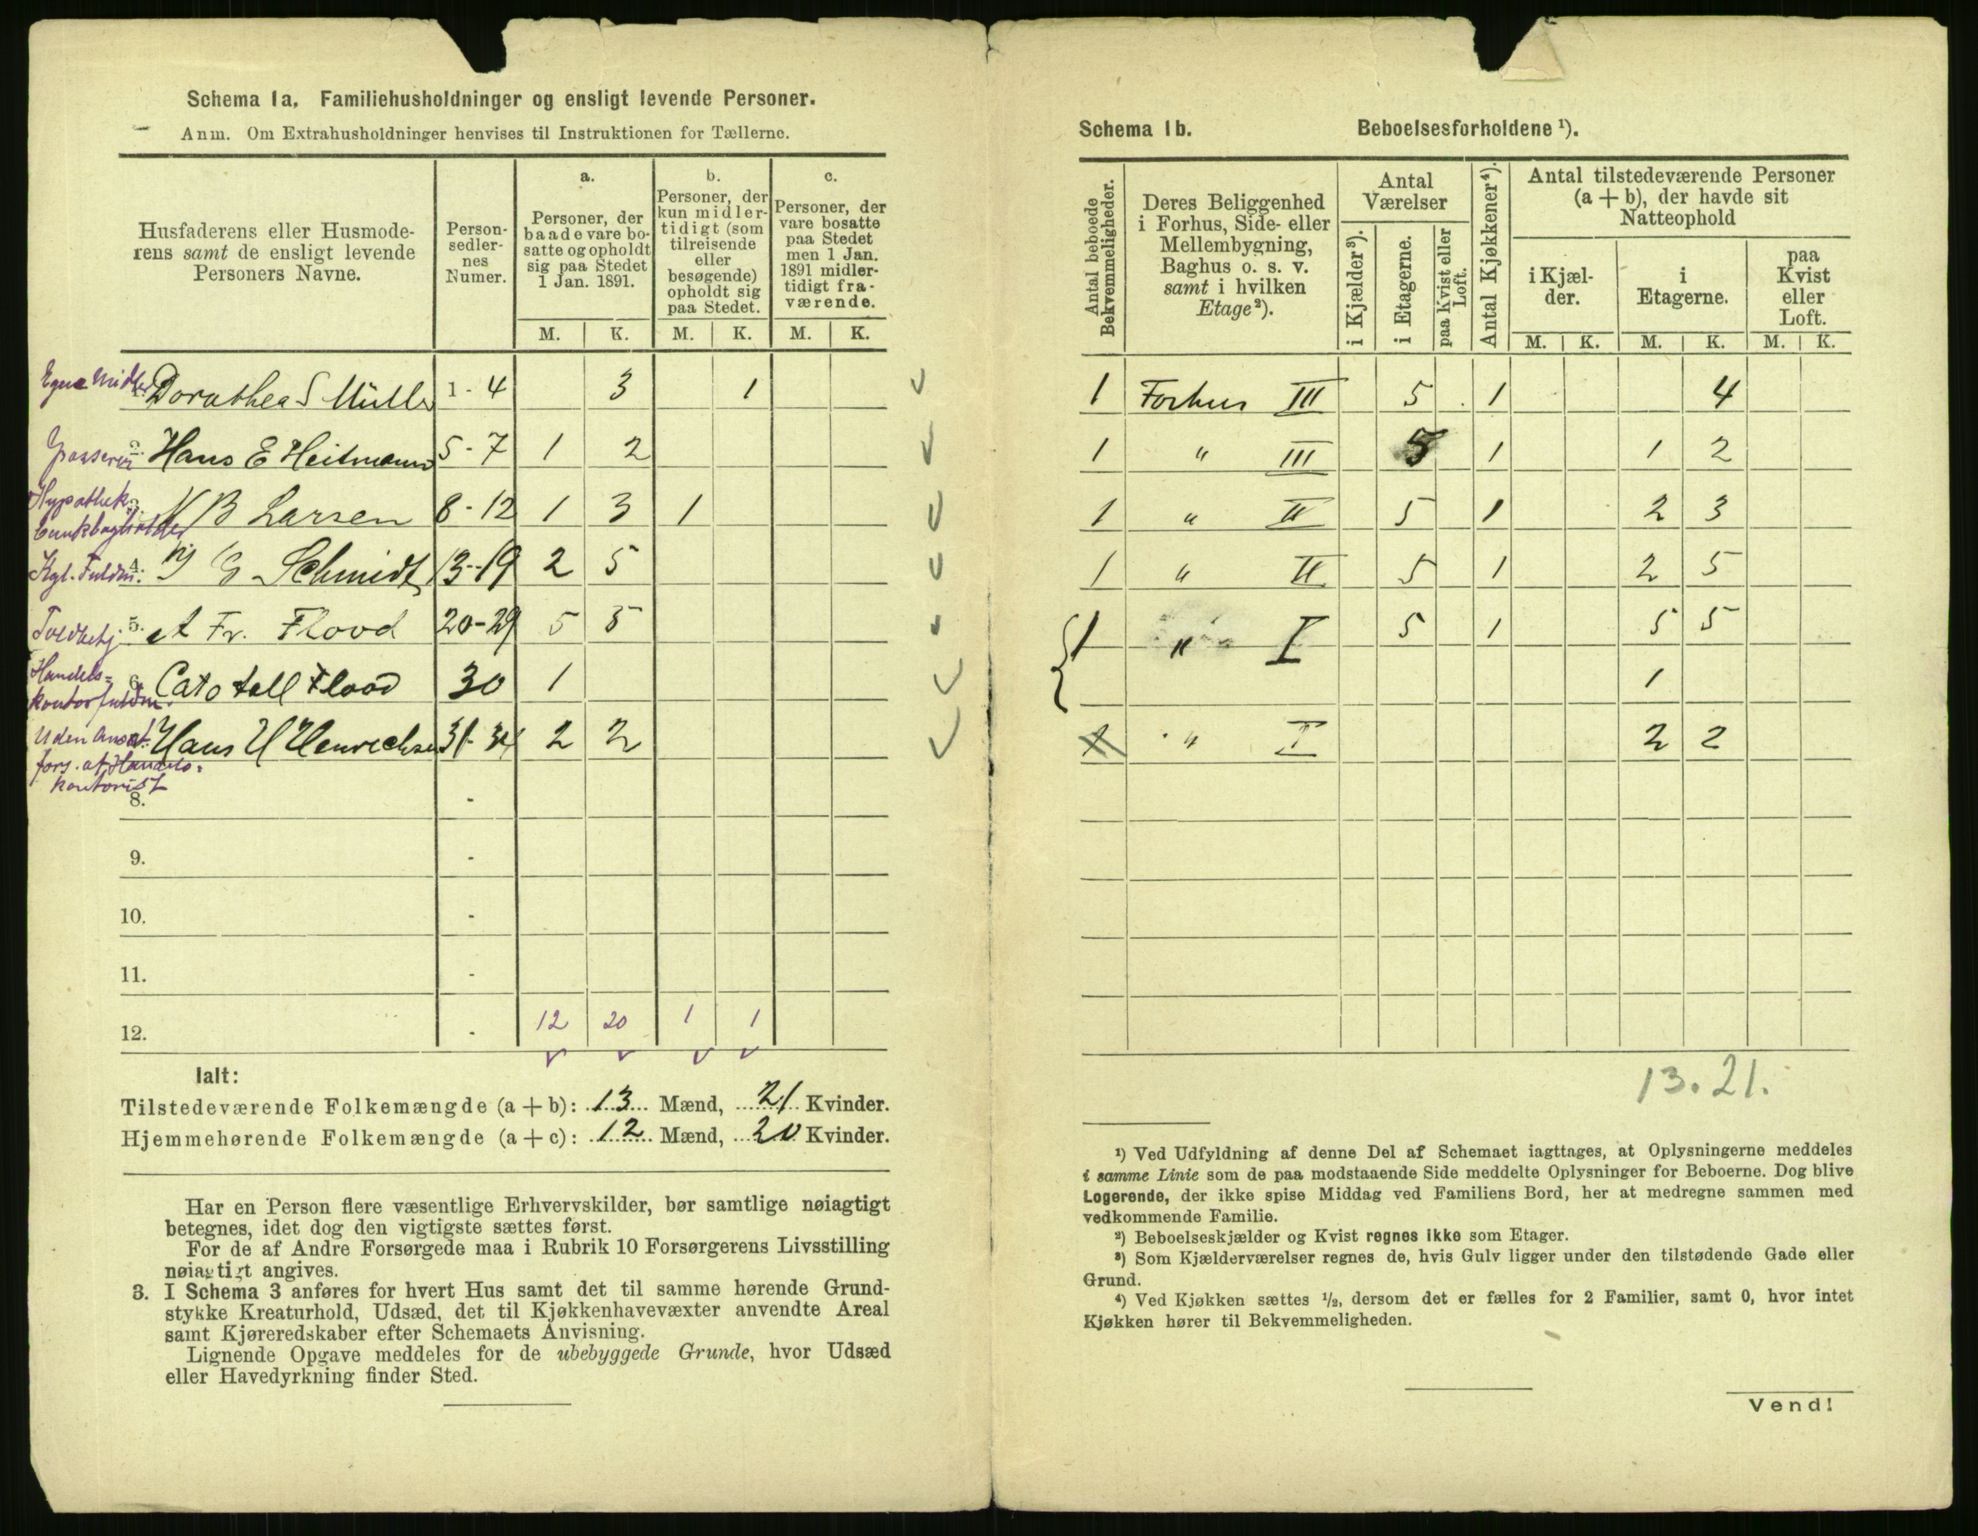 Schema 1a. Familiehusholdninger og ensligt levende Personer.
Anm. Om Extrahusholdninger henvises til Instruktionen for Tællerne.
Husfaderens eller Husmode-
rens samt de ensligt levende
Personers Navne.
Person-
sedler-
nes
Numer.
a.
Personer, der
baade vare bo-
satte og opholdt
sig paa Stedet
1 Jan. 1891.
b.
Personer, der
kun midler-
tidigt (som
tilreisende
eller
besøgende)
opholdt sig
paa Stedet.
c.
Personer, der
vare bosatte
paa Stedet
men 1 Jan.
1891 midler-
tidigt fra-
værende.
M. K. M. K. M. K.
Egne Midler Dorothea S Müller 1-4 3 1
2. Hans E Heitmann 5-7 1 2
Hypothek-
3. B Larsen 8-12 1 3 1
Kgl. Fuldm: 4. G Schmidt 13-19 2 5
Toldbetj 5. Fr. Flood 20-29 5 5
Handels-
6. Cato Flood 30 1
kontorfuldm.
Uden Ansæt. Hans H Henrechsen 31-34 2 2
fors. af Handels-
kontorist
8. -
9. -
10. -
11. -
12. - 12 20 1 1
Ialt:
Tilstedeværende Folkemængde (a + b): 13 Mænd, 21 Kvinder.
Hjemmehørende Folkemængde (a + c): 12 Mænd, 20 Kvinder.
Har en Person flere væsentlige Erhvervskilder, bør samtlige nøiagtigt
betegnes, idet dog den vigtigste sættes først.
For de af Andre Forsørgede maa i Rubrik 10 Forsørgerens Livsstilling
nøiagtigt angives.
3. I Schema 3 anføres for hvert Hus samt det til samme hørende Grund-
stykke Kreaturhold, Udsæd, det til Kjøkkenhavevæxter anvendte Areal
samt Kjøreredskaber efter Schemaets Anvisning.
Lignende Opgave meddeles for de ubebyggede Grunde, hvor Udsæd
eller Havedyrkning finder Sted.
Schema 1b. Beboelsesforholdene ¹).
Antal beboede
Bekvemmeligheder.
Deres Beliggenhed
i Forhus, Side- eller
Mellembygning,
Baghus o. s. v.
samt i hvilken
Etage²).
Antal
Værelser
i Kjælder³).
i Etagerne.
paa Kvist eller
Loft.
Antal Kjøkkener⁴).
Antal tilstedeværende Personer
(a + b), der havde sit
Natteophold
i Kjæl-
der.
i
Etagerne.
paa
Kvist
eller
Loft.
M. K. M. K. M. K.
1 Forhus III 5 1 4
1 " III 5 1 1 2
1 " II 5 1 2 3
1 " II 5 1 2 5
1 " I 5 1 5 5
1
1 " I 2 2
13. 21.
¹) Ved Udfyldning af denne Del af Schemaet iagttages, at Oplysningerne meddeles
i samme Linie som de paa modstaaende Side meddelte Oplysninger for Beboerne. Dog blive
Logerende, der ikke spise Middag ved Familiens Bord, her at medregne sammen med
vedkommende Familie.
²) Beboelseskjælder og Kvist regnes ikke som Etager.
³) Som Kjælderværelser regnes de, hvis Gulv ligger under den tilstødende Gade eller
Grund.
⁴) Ved Kjøkken sættes ½, dersom det er fælles for 2 Familier, samt 0, hvor intet
Kjøkken hører til Bekvemmeligheden.
Vend!